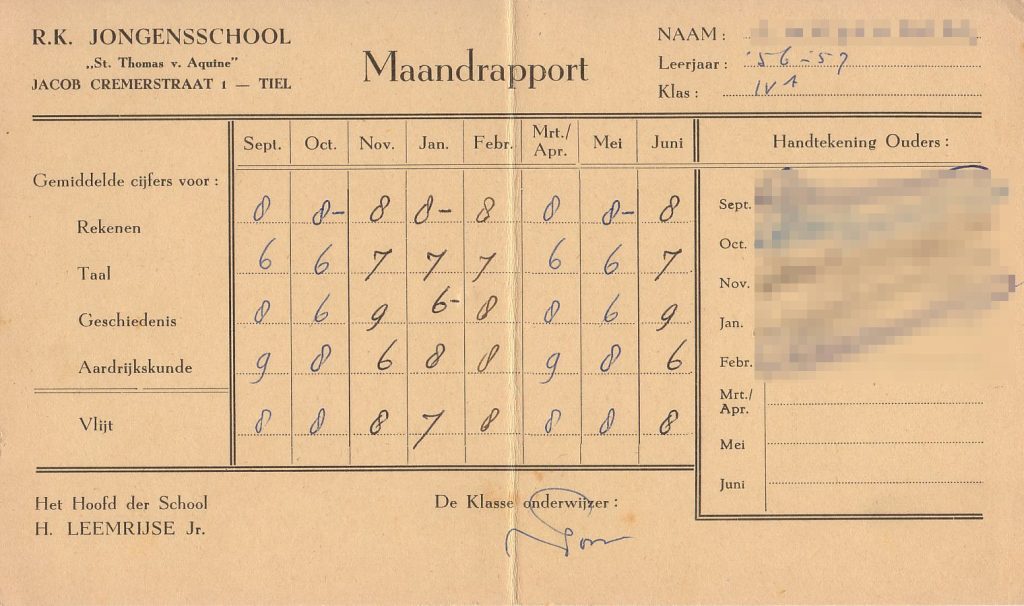 R.K. JONGENSSCHOOL
„St. Thomas v. Aquine"
JACOB CREMERSTRAAT 1 — TIEL
Maandrapport
NAAM :
Leerjaar : '56-57
Klas : IV A
Sept. Oct. Nov. Jan. Febr. Mrt./Apr. Mei Juni
Handtekening Ouders :
Gemiddelde cijfers voor :
Rekenen 8 8- 8 8- 8 8 8- 8
Taal 6 6 7 7 7 6 6 7
Geschiedenis 8 6 9 6- 8 8 6 9
Aardrijkskunde 9 8 6 8 8 9 8 6
Vlijt 8 8 8 7 8 8 8 8
Sept.
Oct.
Nov.
Jan.
Febr.
Mrt./
Apr.
Mei
Juni
Het Hoofd der School
H. LEEMRIJSE Jr.
De Klasse onderwijzer :